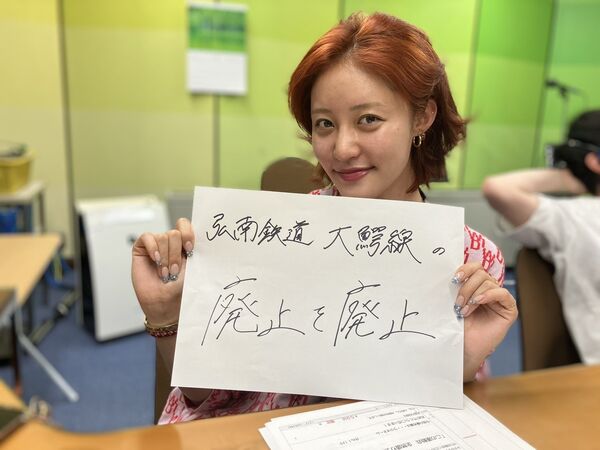 弘南鉄道 大鰐線の
廃止を廃止